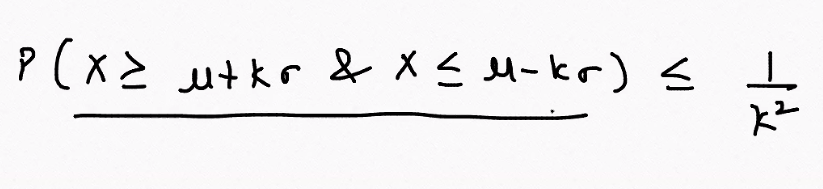 P(X ≥ μ+kσ & X ≤ μ-kσ) ≤ 1/k²